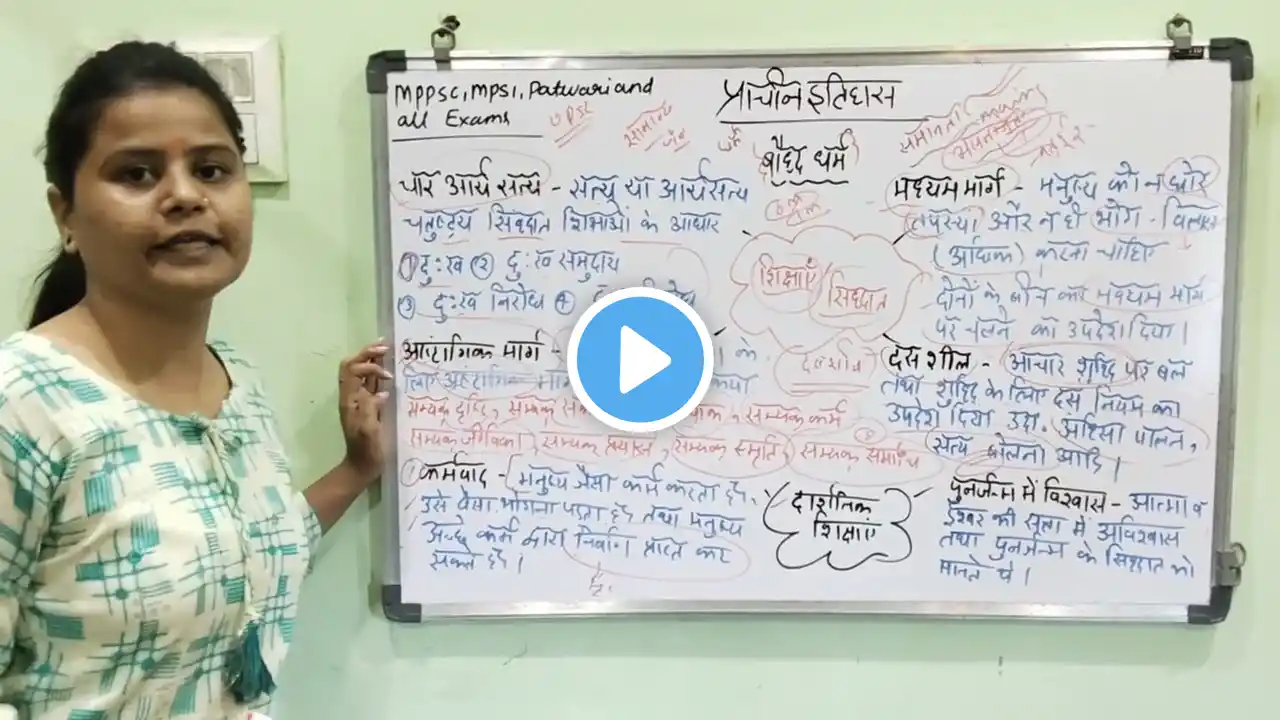 MPPSC, MPSI, Patwari and
all Exams
UPSC
प्राचीन इतिहास
mains
बौद्ध धर्म
चार आर्य सत्य - सत्य या आर्यसत्य
चतुष्ट्य सिद्धांत शिक्षाओं के आधार
① दुःख ② दुःख समुदाय
③ दुःख निरोध ④
शिक्षाएँ / सिद्धांत
मध्यम मार्ग - मनुष्य को न घोर
तपस्या और न ही भोग - विलास
(अधिक) करना चाहिए
दोनों के बीच का मध्यम मार्ग
पर चलने का उपदेश दिया।
अष्टांगिक मार्ग - के
लिए अष्टांगिक
सम्यक दृष्टि, सम्यक सम्यक कर्म
सम्यक जीविका, सम्यक सम्यक स्मृति, सम्यक समाधि
दस शील - आचार शुद्धि पर बल
तथा शुद्धि के लिए दस नियम का
उपदेश दिया उदा. अहिंसा पालन,
सत्य बोलना आदि।
कर्मवाद - मनुष्य जैसा कर्म करता है,
उसे वैसा भोगना पड़ता है तथा मनुष्य
अच्छे कर्म द्वारा निर्वाण प्राप्त कर
सकते है।
दार्शनिक
शिक्षाएं
पुनर्जन्म में विश्वास - आत्मा व
ईश्वर की सत्ता में अविश्वास
तथा पुनर्जन्म के सिद्धांत को
मानते थे।